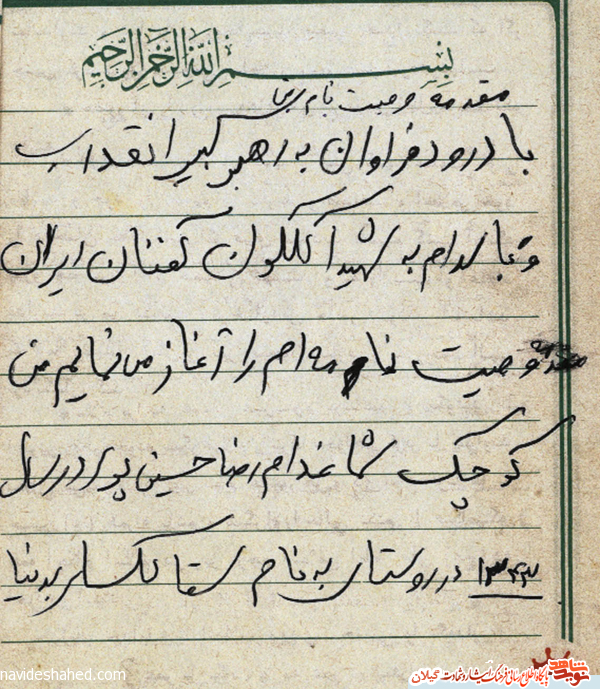 بسم الله الرحمن الرحیم
مقدمه وصیت نامه رضا
با درود فراوان به رهبر کبیر انقلاب
و با سلام به شهیدا گلگون کفنان ایران
مقدمه وصیت نامه ام را آغاز می نمایم من
کوچک شما غلام رضا حسین پور در سال
۱۳۴۳ در روستای به نام سقالکسار بدنیا
navideshahed.com
نوید شاهد
پایگاه اطلاع رسانی فرهنگ ایثار و شهادت گیلان